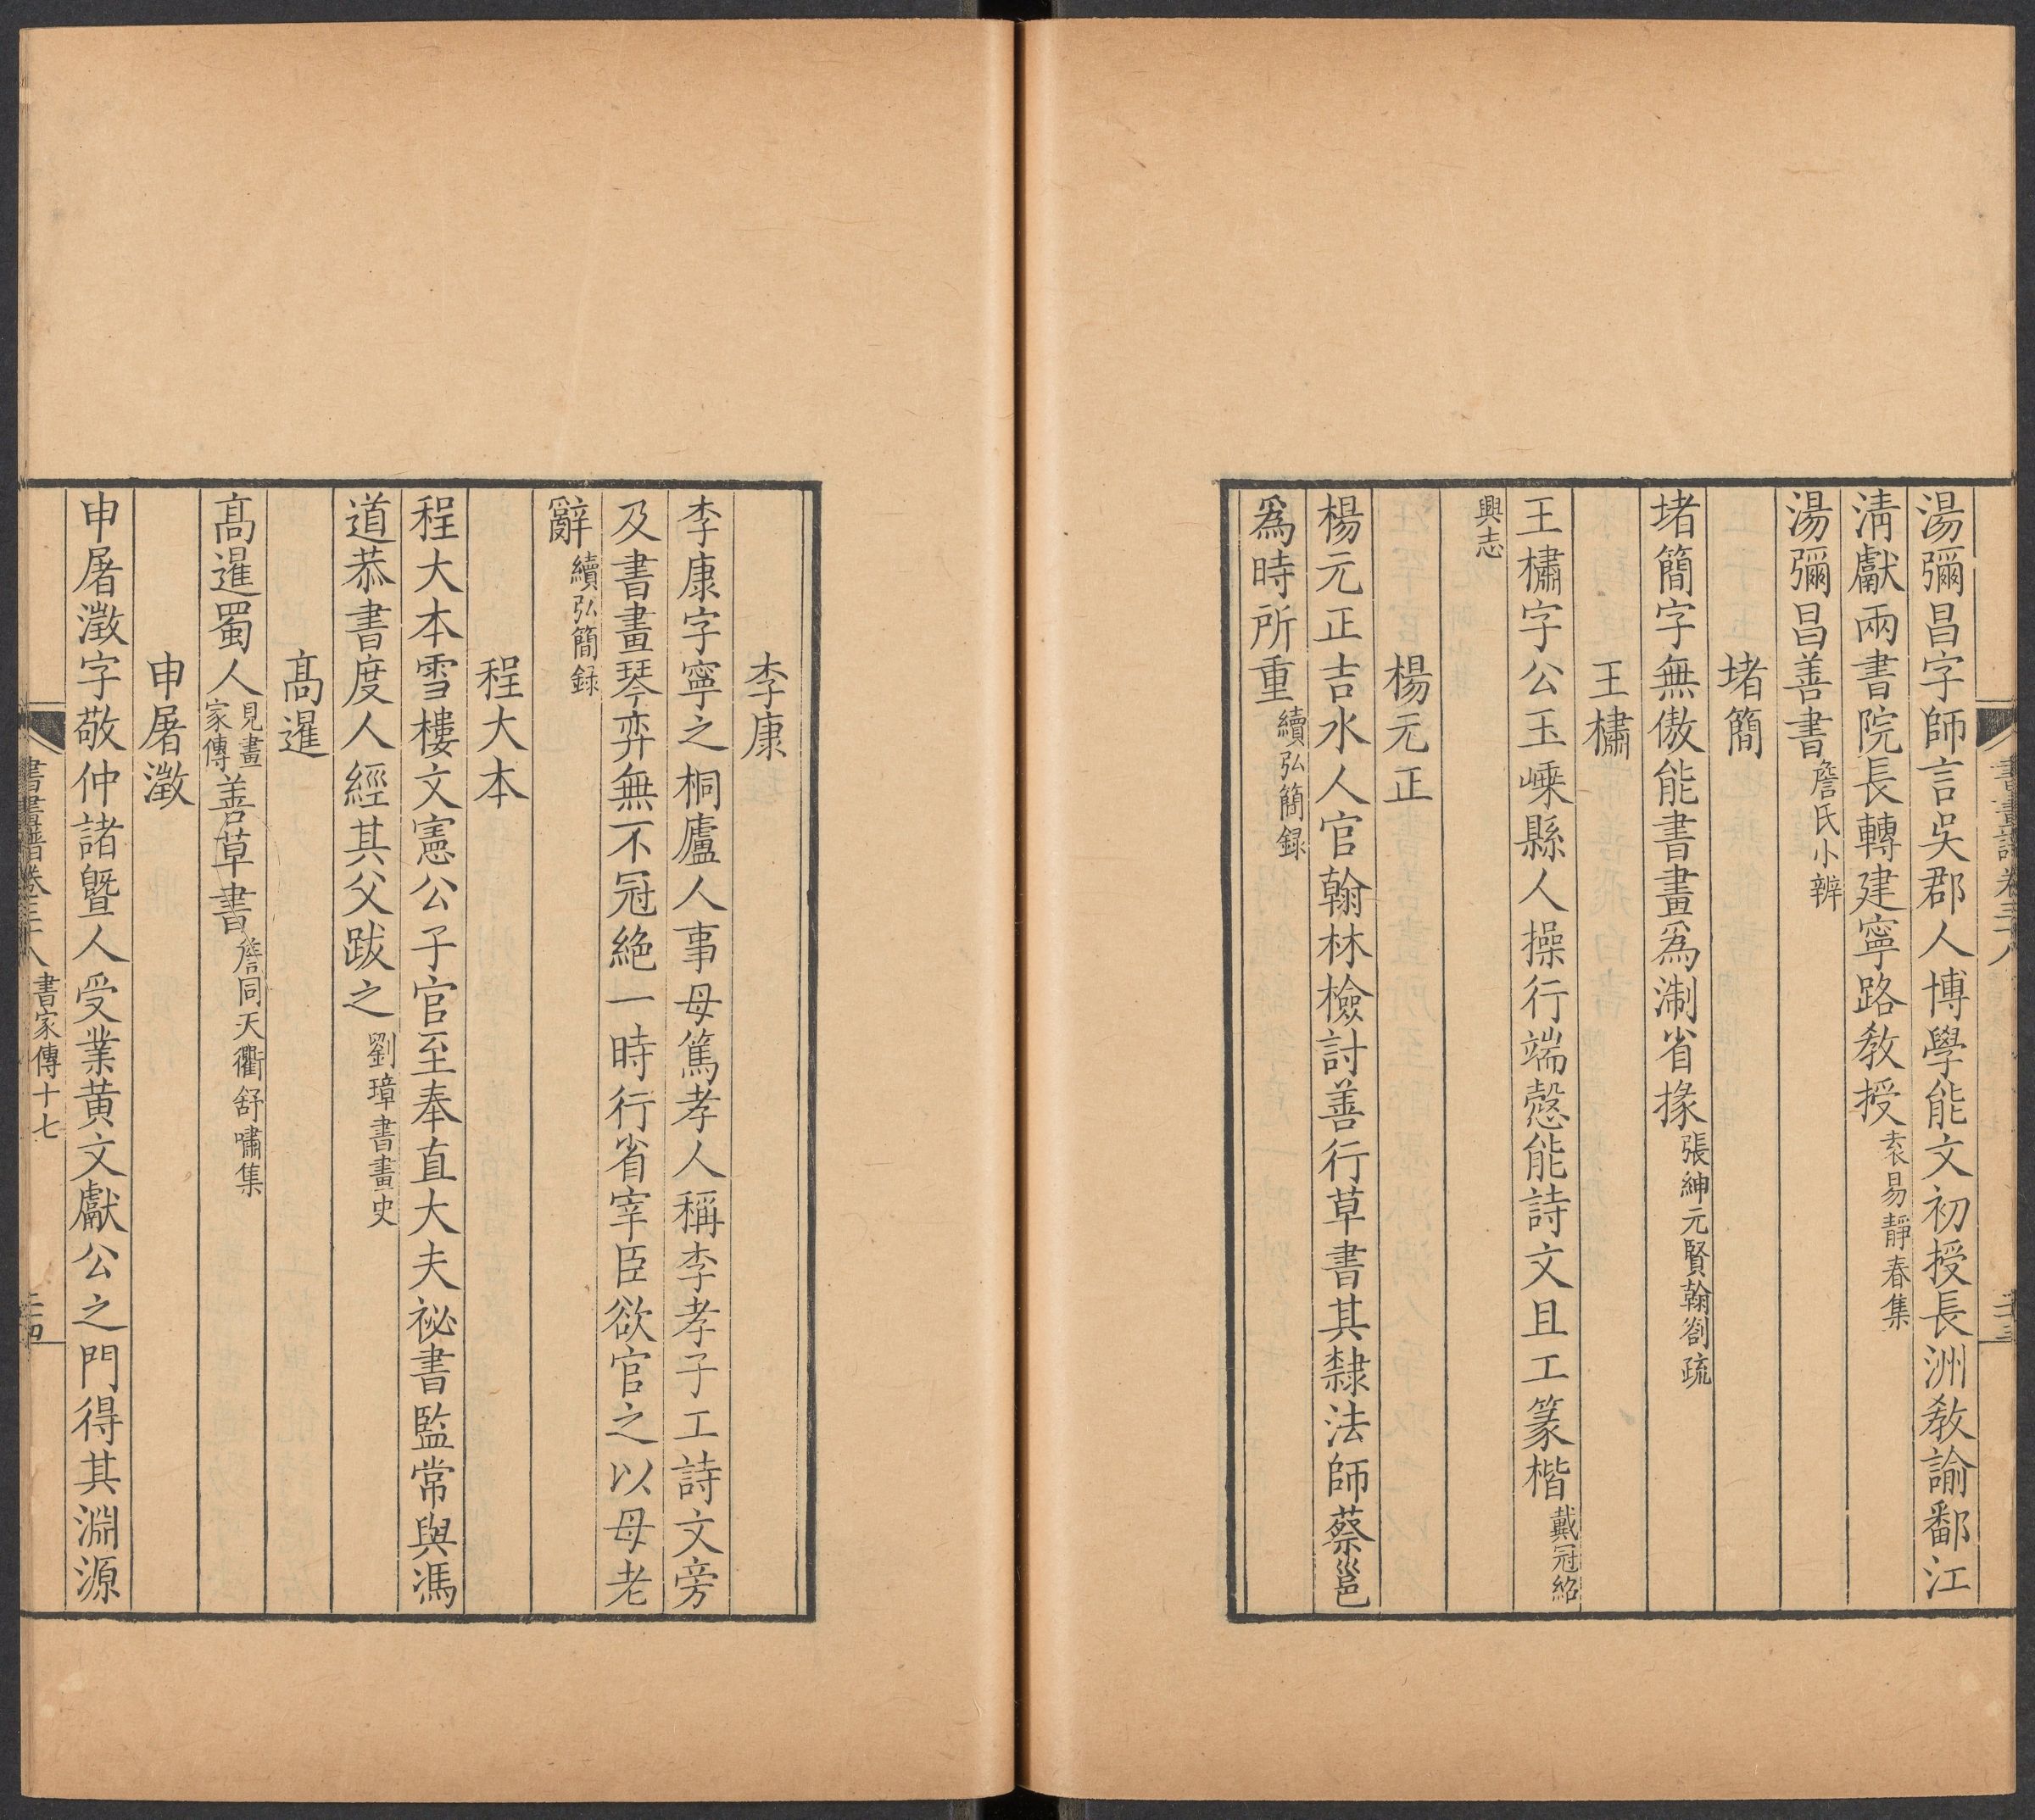 湯彌昌字師言吳郡人博學能文初授長洲教諭鄱江
清獻兩書院長轉建寧路教授袁易靜春集
湯彌昌善書詹氏小辨
堵簡
堵簡字無傲能書畫爲淛省掾張紳元賢翰劄疏
王櫹
王櫹字公玉嵊縣人操行端愨能詩文且工篆楷戴冠紹
興志
楊元正
楊元正吉水人官翰林檢討善行草書其隸法師蔡邕
爲時所重續弘簡録
李康
李康字寧之桐廬人事母篤孝人稱李孝子工詩文旁
及書畫琴弈無不冠絶一時行省宰臣欲官之以母老
辭續弘簡録
程大本
程大本雪樓文憲公子官至奉直大夫祕書監常與馮
道恭書度人經其父跋之劉璋書畫史
髙暹
髙暹蜀人見畫家傳善草書詹同天衢舒嘯集
申屠澂
申屠澂字敬仲諸曁人受業黄文獻公之門得其淵源
書畫譜卷三十八 書家傳十七